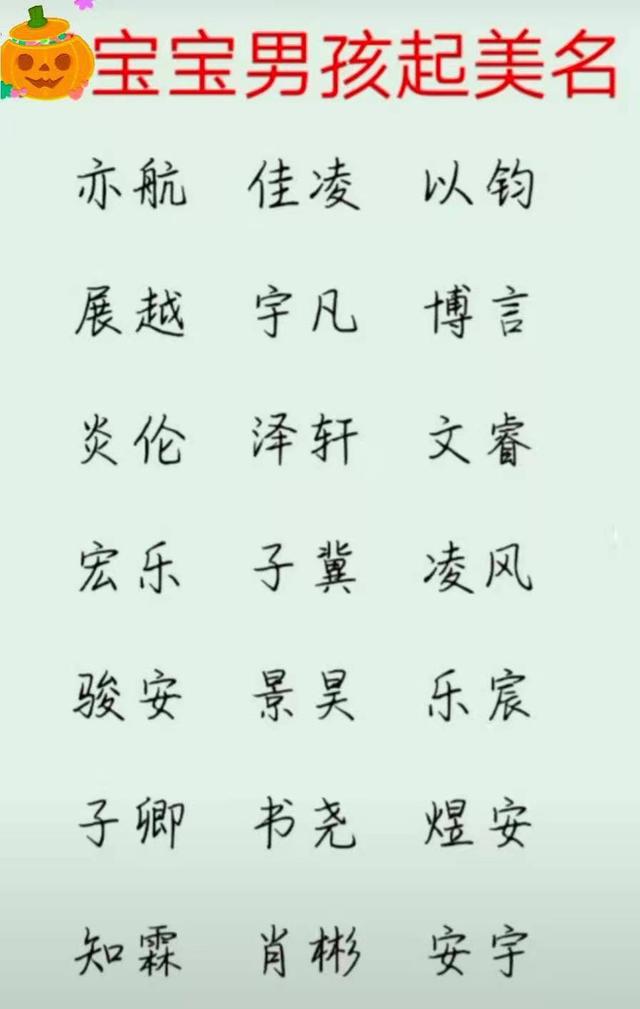 宝宝男孩起美名
亦航 佳凌 以钧
展越 宇凡 博言
炎伦 泽轩 文睿
宏乐 子冀 凌风
骏安 景昊 乐宸
子卿 书尧 煜安
知霖 肖彬 安宇